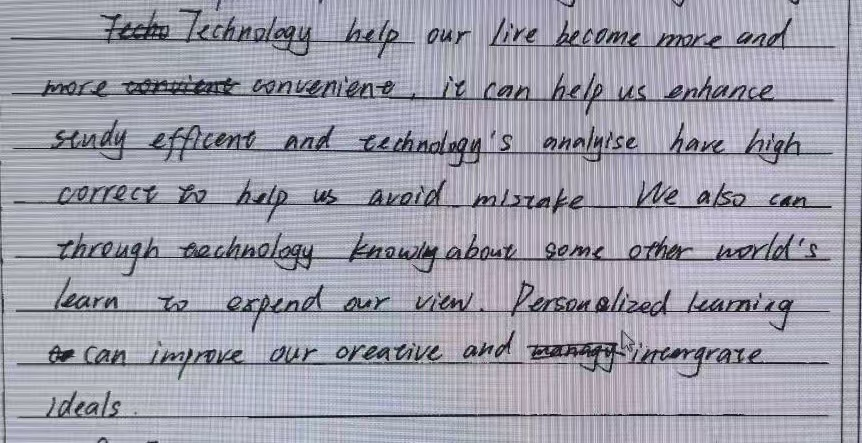 Technology help our live become more and
more convenient, it can help us enhance
study efficent and technology's analyise have high
correct to help us avoid mistake We also can
through technology knowly about some other world's
learn to expend our view. Personalized learning
can improve our creative and intergrate
ideals.